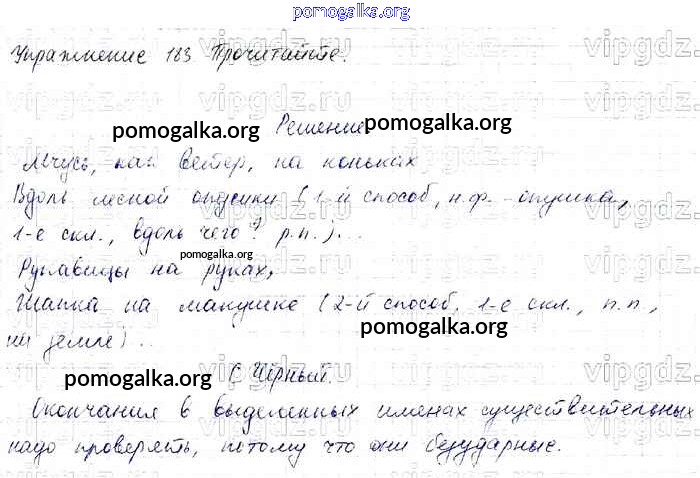 pomogalka.org
Упражнение 183 Прочитайте.
vipgdz.ru
Решение
pomogalka.org
Мчусь, как ветер, на коньках
Вдоль лесной опушки (1-й способ, н.ф. - опушка,
1-е скл., вдоль чего? р.п.)...
pomogalka.org
Рукавицы на руках,
Шапка на макушке (2-й способ, 1-е скл., п.п.,
на земле)...
pomogalka.org
С. Чёрный.
pomogalka.org
Окончания в выделенных именах существительных
надо проверять, потому что они безударные.